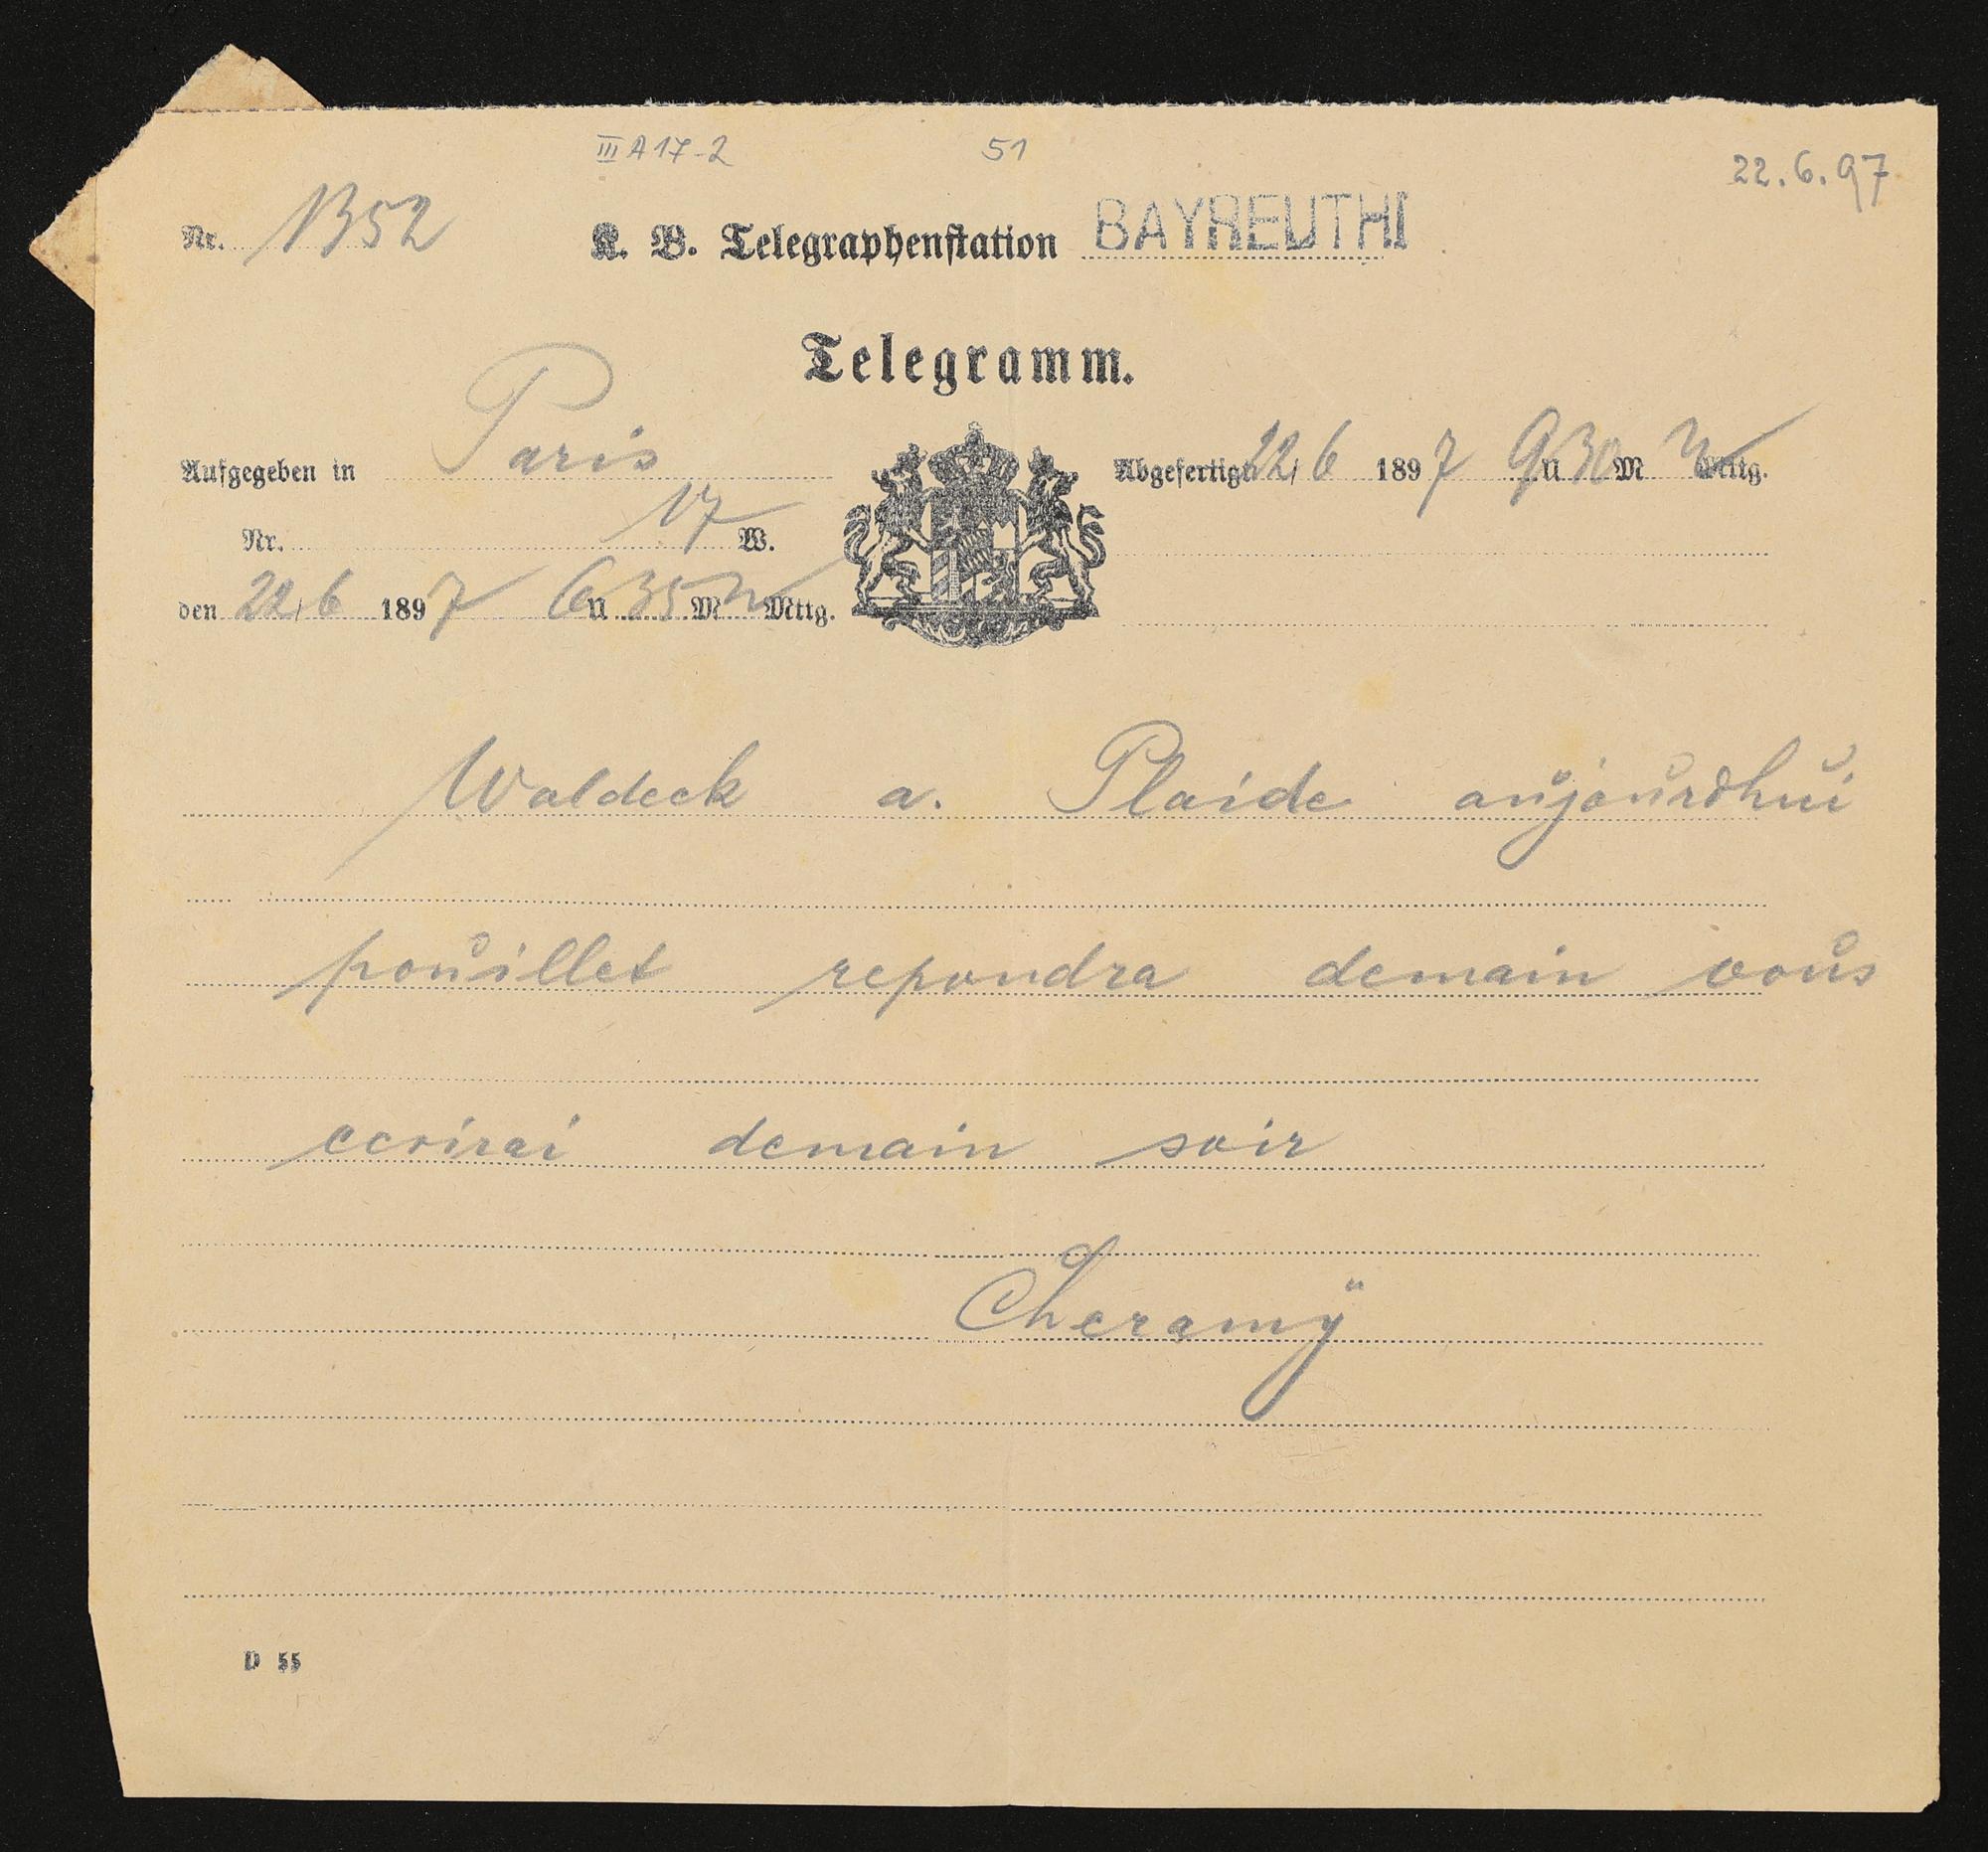 III A 17-2 51 22.6.97
Nr. 1352 K. B. Telegraphenstation BAYREUTH I
Telegramm.
Aufgegeben in Paris
Nr. 17 W.
den 22/6 1897 6 U 35 M N Mttg.
Abgefertigt 22/6 1897 9 U 30 M N Mttg.
Waldeck a. Plaide aujourdhui
pouillet repondra demain vous
ecrirai demain soir
Cheramy
D 55